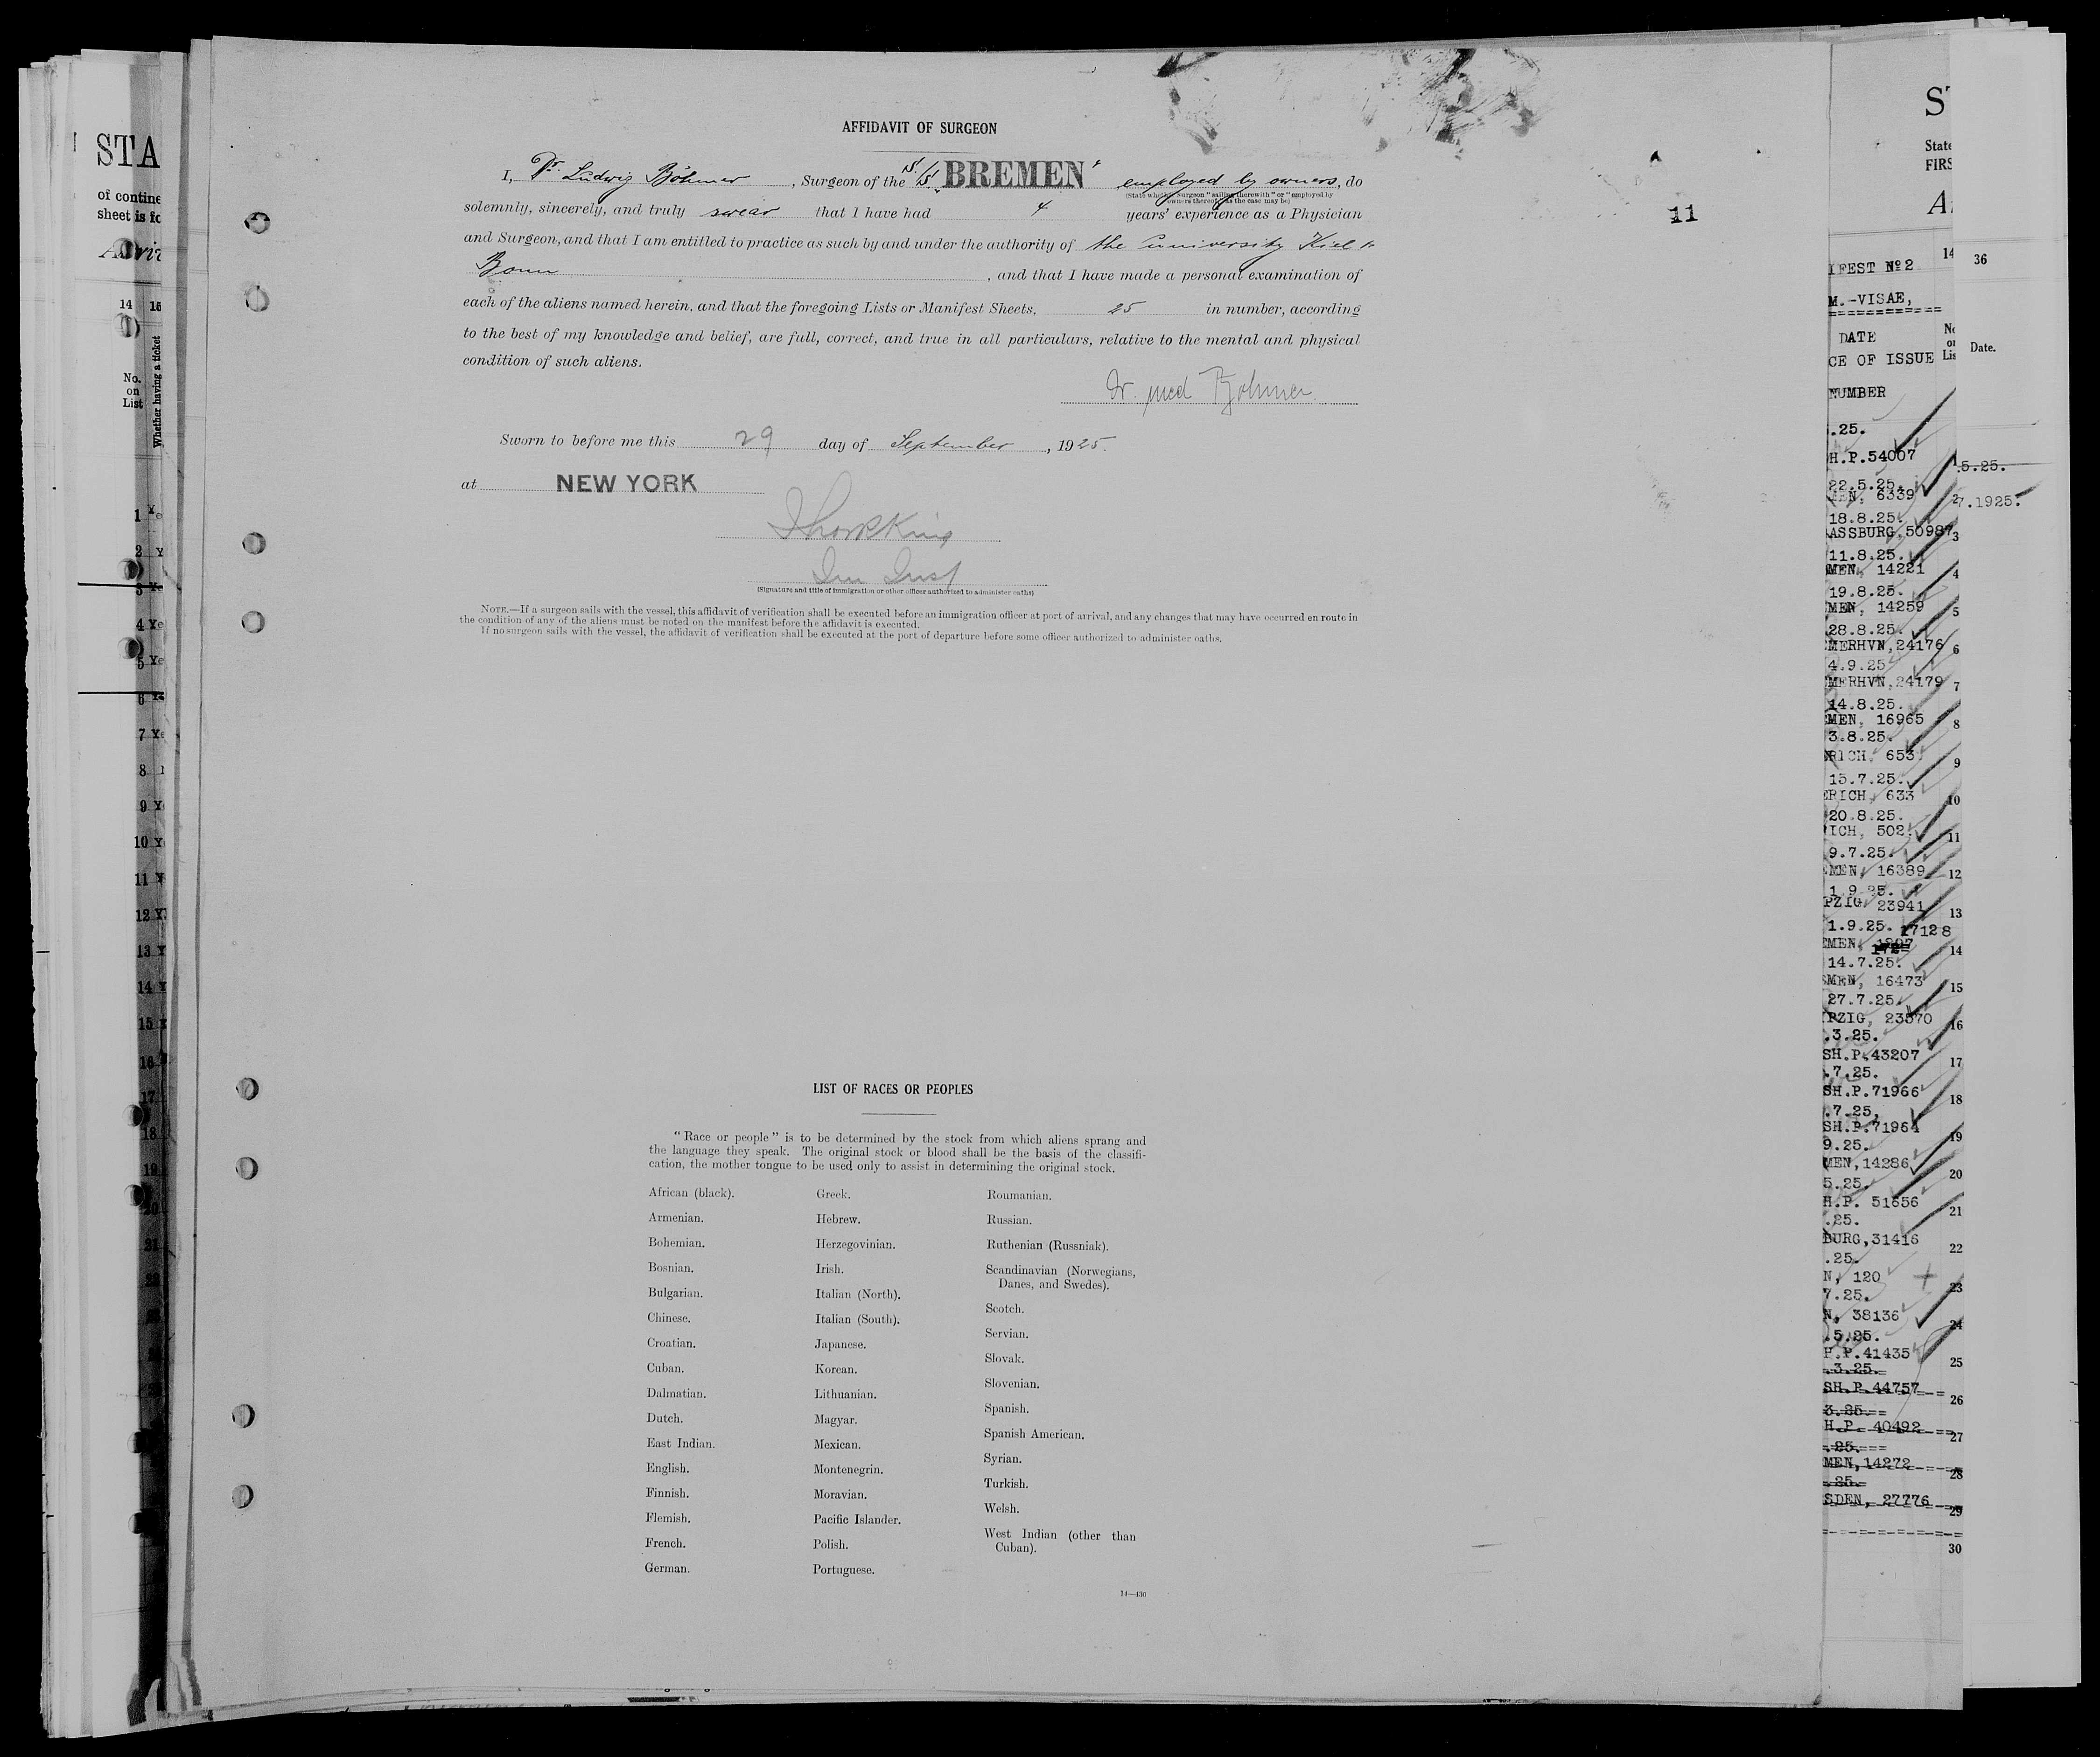 AFFIDAVIT OF SURGEON
I, Dr. Ludwig Böhmer, Surgeon of the S/S. "BREMEN" employed by owners, do
(State whether Surgeon "sailing therewith" or "employed by
owners thereof," as the case may be)
solemnly, sincerely, and truly swear that I have had 4 years' experience as a Physician
and Surgeon, and that I am entitled to practice as such by and under the authority of the university Kiel
Bonn, and that I have made a personal examination of
each of the aliens named herein, and that the foregoing Lists or Manifest Sheets, 25 in number, according
to the best of my knowledge and belief, are full, correct, and true in all particulars, relative to the mental and physical
condition of such aliens.
Dr. med Böhmer.
Sworn to before me this 29 day of September, 1925.
at NEW YORK
(Signature and title of immigration or other officer authorized to administer oaths)
NOTE.—If a surgeon sails with the vessel, this affidavit of verification shall be executed before an immigration officer at port of arrival, and any changes that may have occurred en route in
the condition of any of the aliens must be noted on the manifest before the affidavit is executed.
If no surgeon sails with the vessel, the affidavit of verification shall be executed at the port of departure before some officer authorized to administer oaths.
11
LIST OF RACES OR PEOPLES
"Race or people" is to be determined by the stock from which aliens sprang and
the language they speak. The original stock or blood shall be the basis of the classifi-
cation, the mother tongue to be used only to assist in determining the original stock.
African (black).
Armenian.
Bohemian.
Bosnian.
Bulgarian.
Chinese.
Croatian.
Cuban.
Dalmatian.
Dutch.
East Indian.
English.
Finnish.
Flemish.
French.
German.
Greek.
Hebrew.
Herzegovinian.
Irish.
Italian (North).
Italian (South).
Japanese.
Korean.
Lithuanian.
Magyar.
Mexican.
Montenegrin.
Moravian.
Pacific Islander.
Polish.
Portuguese.
Roumanian.
Russian.
Ruthenian (Russniak).
Scandinavian (Norwegians,
Danes, and Swedes).
Scotch.
Servian.
Slovak.
Slovenian.
Spanish.
Spanish American.
Syrian.
Turkish.
Welsh.
West Indian (other than
Cuban).
14—430
STA
of contine
sheet is fo
14 15
No.
on
List
Whether having a ticket
1
2
3
4
5
6
7
8
9
10
11
12
13
14
15
16
17
18
19
20
21
ST
State
FIRS
14
36
IFEST No 2
M.-VISAE,
DATE
CE OF ISSUE
NUMBER
Date.
.25.
H.P.54007
22.5.25.
EN, 6339
18.8.25.
ASSBURG,50987
11.8.25.
MEN, 14221
19.8.25.
MEN, 14259
28.8.25.
MERHVN,24176
4.9.25
MERHVN,24179
14.8.25.
MEN, 16965
3.8.25.
RICH, 653
15.7.25.
ERICH, 633
20.8.25.
ICH, 502
9.7.25.
MEN, 16389
1.9.25.
PZIG, 23941
1.9.25. 17128
EMEN,
14.7.25.
EMEN, 16473
27.7.25.
PZIG, 23570
.3.25.
SH.P.43207
.7.25.
SH.P.71966
.7.25,
SH.P.71964
9.25.
MEN,14286
5.25.
H.P. 51656
.25.
BURG,31416
.25.
N, 120
7.25.
N, 38136
.5.25.
H.P.41435
.3.25.
SH.P.44757
3.25.
H.P. 40492
.25.
MEN,14272
.25.
SDEN, 27776
5.25.
7.1925.
2
3
4
5
6
7
8
9
10
11
12
13
14
15
16
17
18
19
20
21
22
23
24
25
26
27
28
29
30